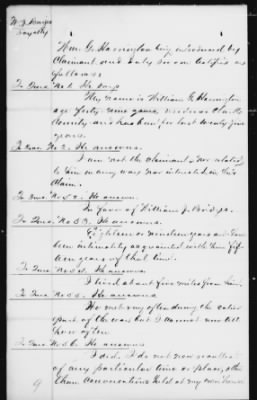 Wm. G. Harrington being introduced by
Claimant and duly sworn testified as
follows:
To Ques. No 1. He says
My name is William G. Harrington
age forty nine years, reside in Clarke
County and has been for last twenty five
years.
To Ques. No 2. He answers.
I am not the claimant, nor related
to him in any way nor interested in this
Claim.
To Ques. No 52. He answers.
In favor of William J.
To Ques. No 53. He answers.
Eighteen or nineteen years and have
been intimately acquainted with him fif-
teen years of that time.
To Ques. No 54. He answers
I lived about five miles from him.
To Ques. No 55. He answers
We met very often during the
part of the war but I cannot now tell
how often
To Ques. No 56. He answers
I did. I do not now recollect
of any particular time or place, other
than conversations held at my own house
9